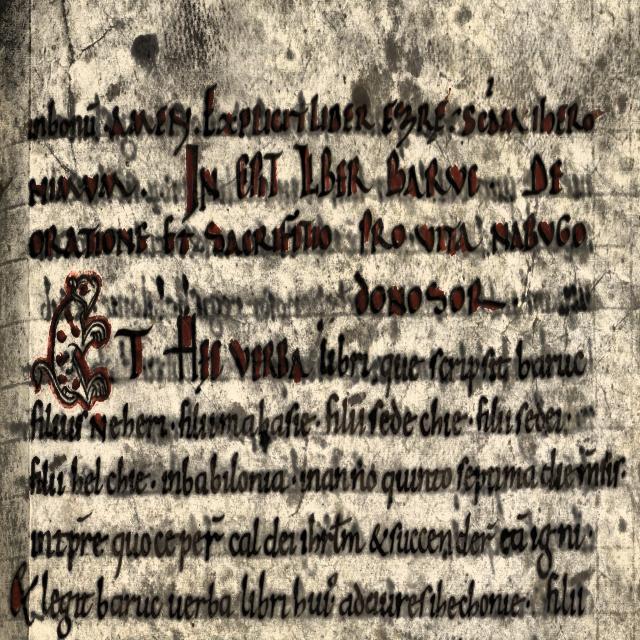 inbonū. AMEN. EXPLICIT LIBER EZRE. SCDM IBERO
NIMVM. IN ERT LIBER BARVC. DE
ORATIONE ET SACRIFITIO PRO VITA NABVGO
DONOSOR
ET HEC VERBA libri. que scripsit baruc
filius Neheri. filii maasie. filii sedechie. filii sedei.
filii helchie. inbabilonia. inanno quinto septima die msis.
intpre quo ceper caldei ihrlm & succender eā igni.
Et legit baruc uerba libri hui adaures iechonie. filii